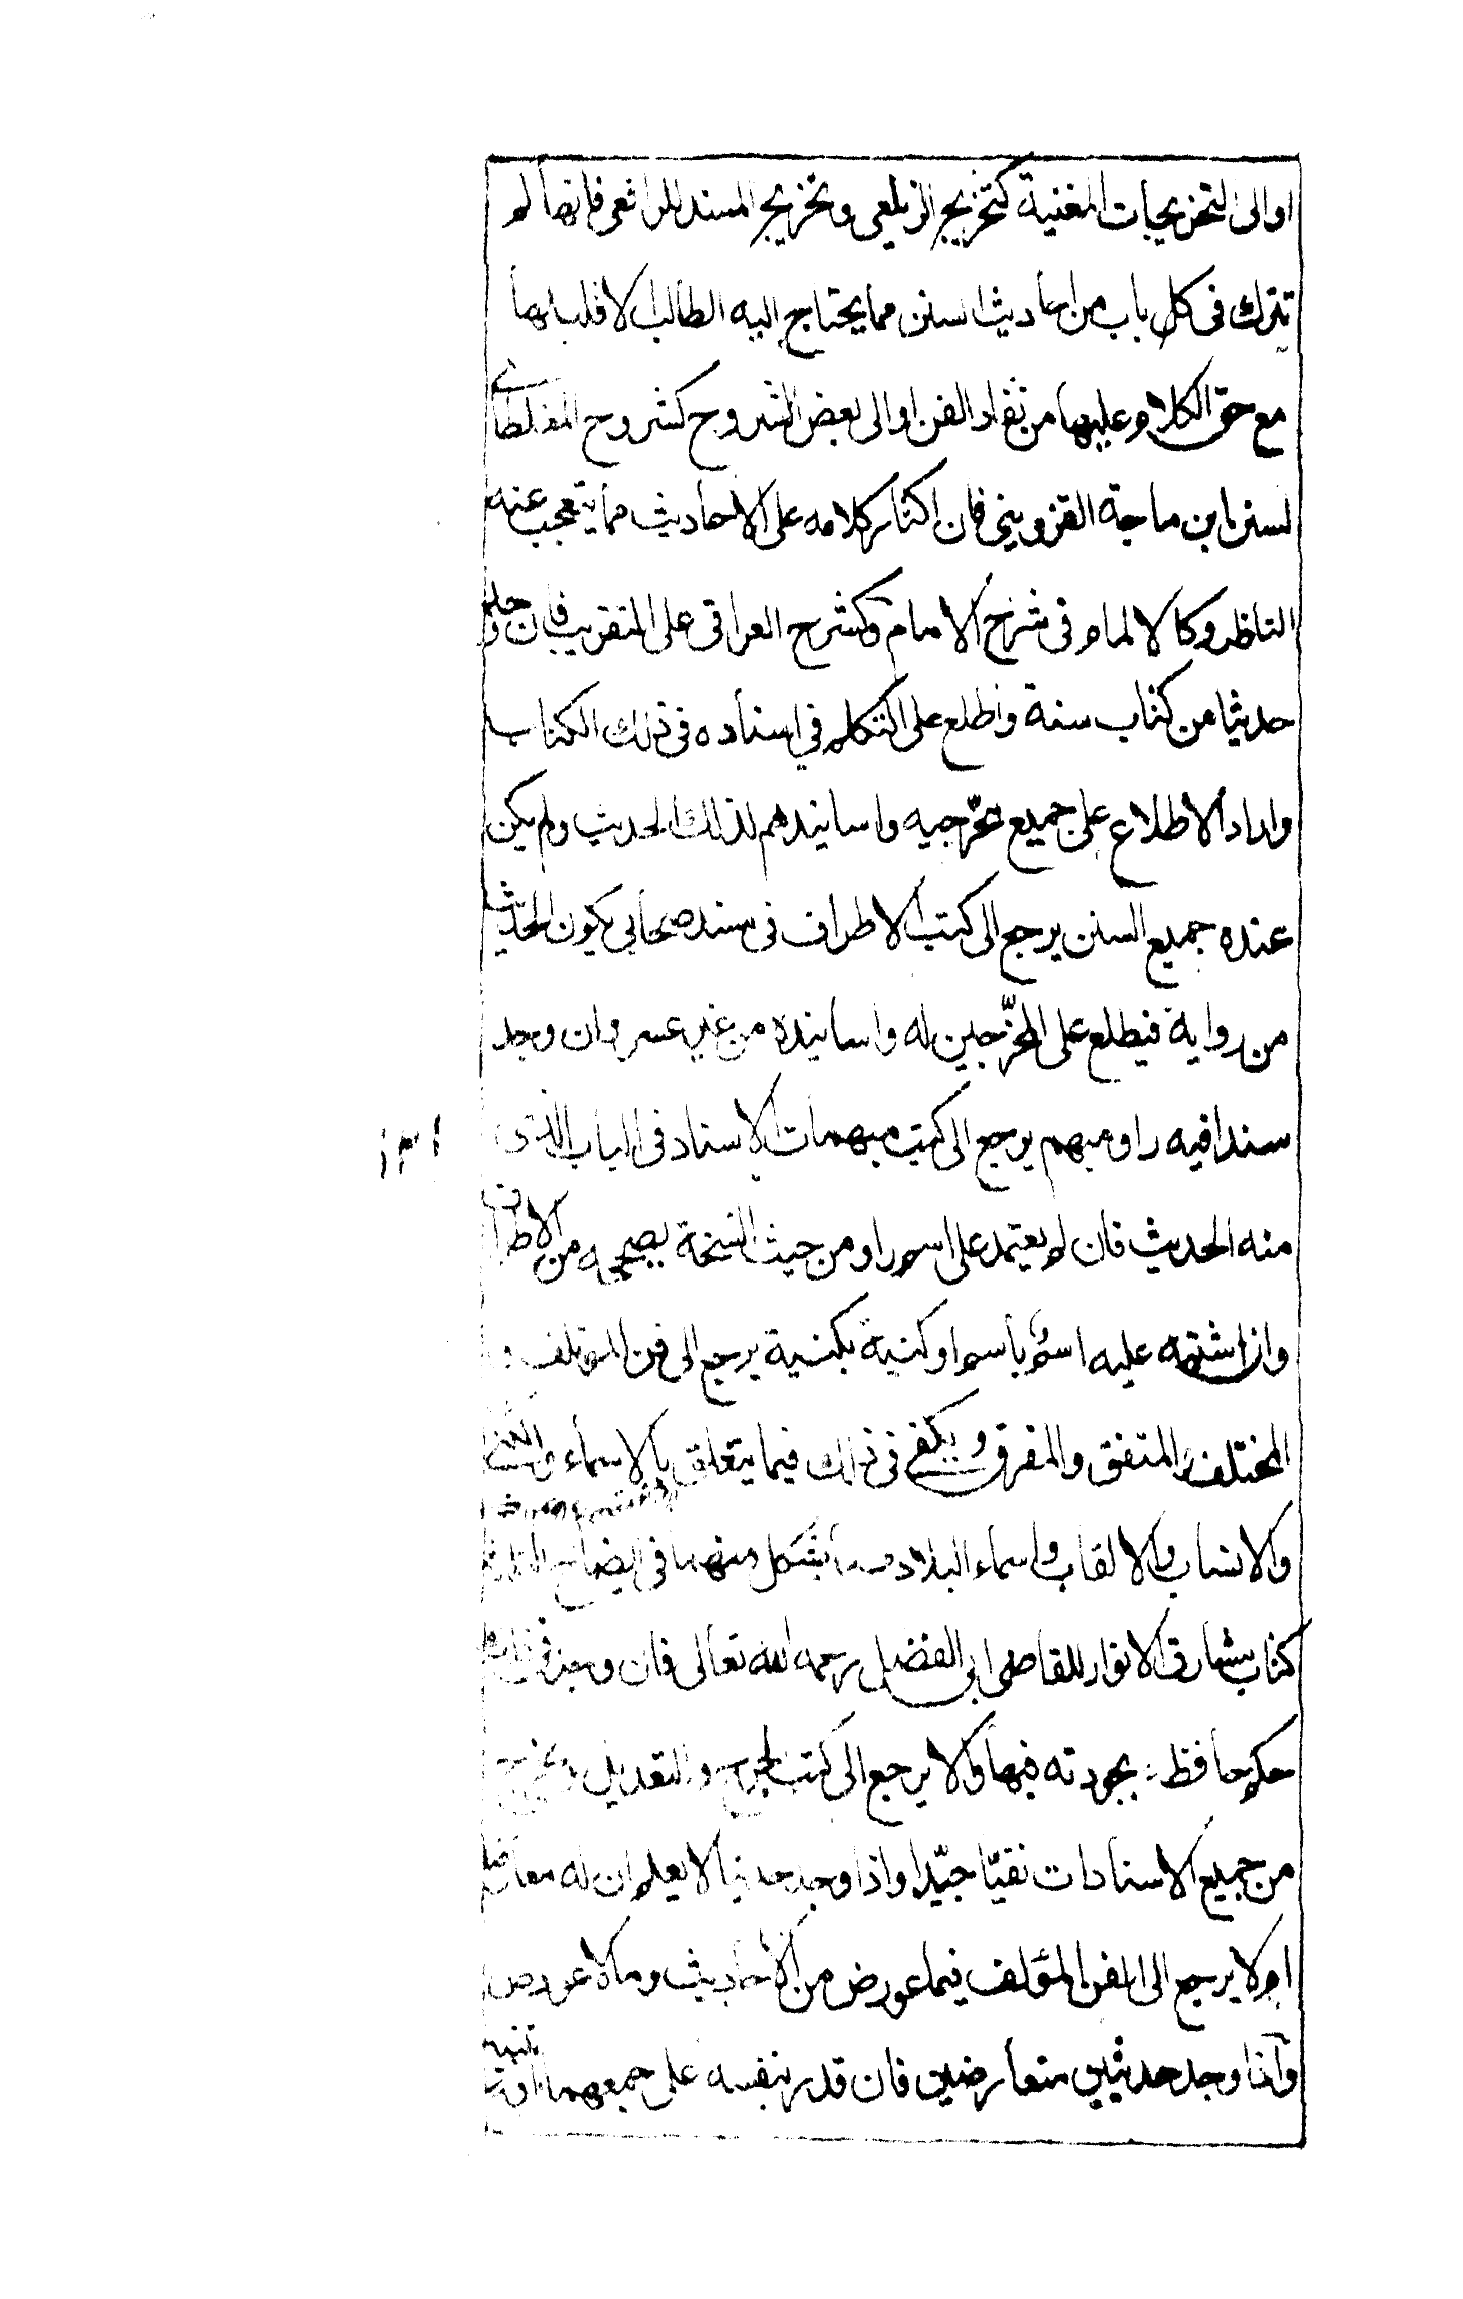 او الى التخريجات المغنية كتخريج الزيلعي وتخريج المسند للرافعي فانها لم
تترك في كل باب من احاديث السنن مما يحتاج اليه الطالب الا قلب بها
مع حق الكلام عليها من نقاد الفن او الى بعض الشروح كشروح المغلطاي
لسنن ابن ماجة القزويني فان اكثار كلامه على الاحاديث مما يتعجب عنه
الناظر وكالالمام في شرح الامام وكشرح العراقي على التقريب فان
حديثا من كتاب سنة واطلع على التكلم في اسناده في ذلك الكتاب
واراد الاطلاع على جميع مخرّجيه واسانيدهم لذلك الحديث ولم يكن
عنده جميع السنن يرجع الى كتب الاطراف في مسند صحابي يكون الحديث
من رواية فيطلع على المخرّجين له واسانيده من غير عسر وان وجد
سندا فيه راو مبهم يرجع الى كتب مبهمات الاسناد في الباب الذي
منه الحديث فان لم يعتمد على اسم راو من حيث النسخة يصححه من الاطراف
واذا اشتبه عليه اسم باسم او كنية بكنية يرجع الى فن المؤتلف و
المختلف والمتفق والمفرق ويكفي في ذلك فيما يتعلق بالاسماء
والانساب والالقاب واسماء البلاد بشكل منهما في ايضاح
كتاب مشارق الانوار للقاضي ابي الفضل رحمه الله تعالى فان وجد في
حكم حافظ بجودته فبها والا يرجع الى كتب الجرح والتعديل ويخرج
من جميع الاسنادات نقيّا جيّدا واذا وجد حديثا لا يعلم ان له معارضا
ام لا يرجع الى الفن المؤلف فيما عورض من الاحاديث وما لا عورض
واذا وجد حديثين متعارضين فان قدر بنفسه على جمعهما
١٣١